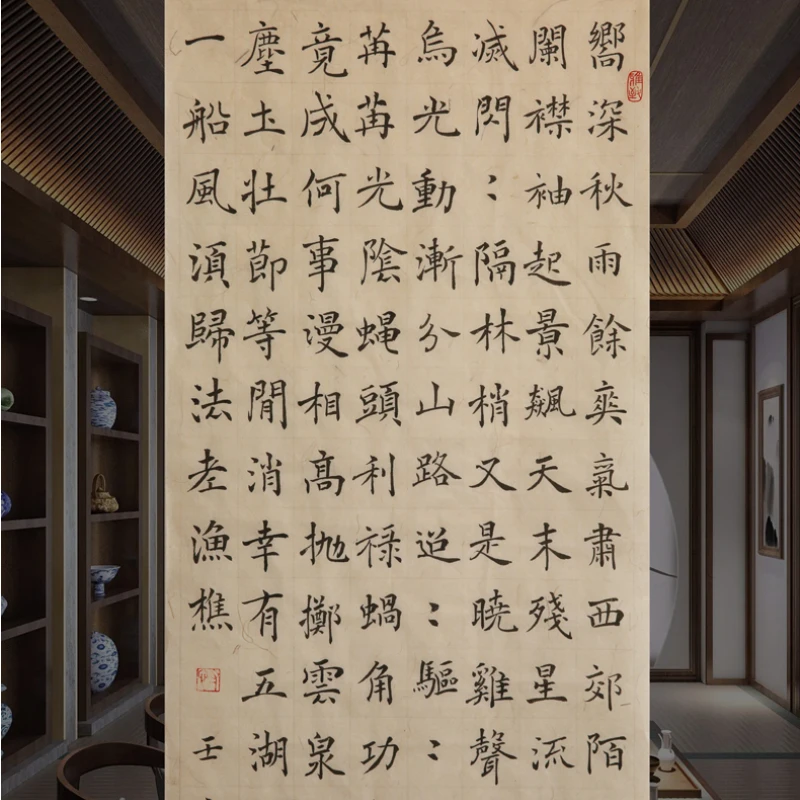 嚮深秋雨餘爽氣肅西郊陌
闌襟袖起景飆天末殘星流
滅閃：隔林梢又是曉雞聲
烏光動漸分山路迢：驅：
苒苒光陰蠅頭利禄蝸角功
竟成何事漫相髙抛擲雲泉
塵土壯節等閒消幸有五湖
一船風湏歸法老漁樵
壬